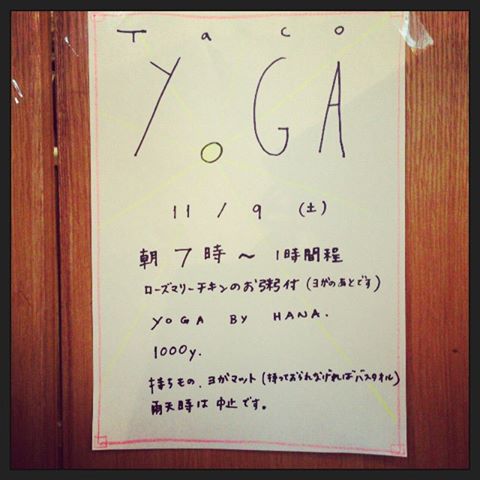 Taco
YoGA
11/9 (土)
朝 7時 〜 1時間程
ローズマリーチキンのお粥付 (ヨガのあとです)
YOGA BY HANA.
1000y.
持ちもの、ヨガマット (持っておられなければバスタオル)
雨天時は中止です。